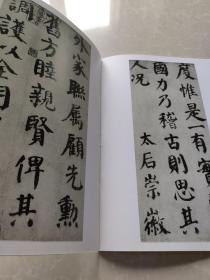 度惟是一有實
國力乃稽古則思其
人況 太后崇徽
外家聯屬顧先勳
舊方睦親賢俾其
調護以全